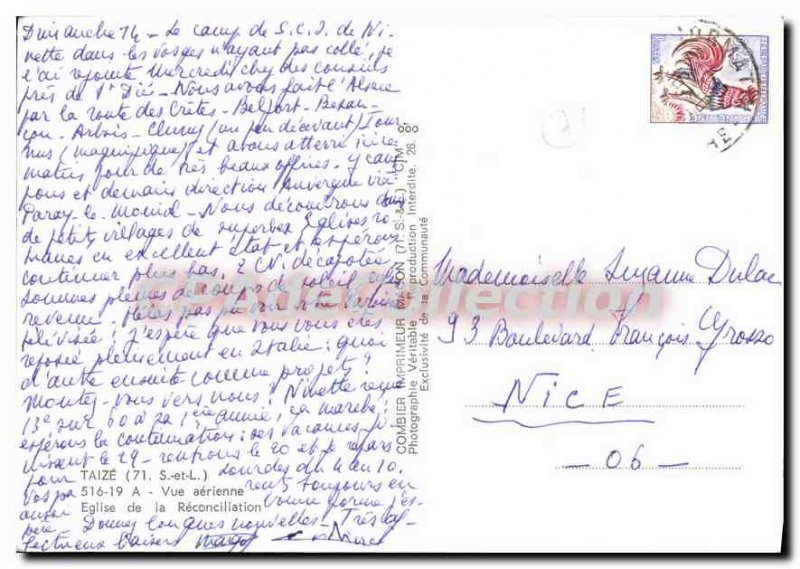 Dimanche 14 - Le camp de S.C.I. de Ni-
nette dans les Vosges n'ayant pas collé, je
l'ai rejointe Mercredi chez des cousins
près de St Dié - Nous avons fait l'Alsace
par la route des Crêtes - Belfort - Besan-
çon - Arbois - Cluny (un peu décevant) Tour-
nus (magnifique) et avons atterri ici ce
matin pour de très beaux offices. y cam-
pons et demain direction Auvergne via
Paray-le-Monial - Nous découvrons
de petits villages de superbes Eglises ro-
manes en excellent état et espérons
continuer plus bas. 2 CV. décapotée
sommes pleines de coups de soleil
revenue - Hélas pas pu voir
télévisée ! J'espère que vous vous êtes
reposée pleinement en Italie : quoi
d'autre ensuite comme projet ?
Montez-vous vers nous ? Ninette reçue
13e sur 60 à sa 1ère année, ça marche,
espérons la continuation : ses vacances
finissent le 29 - rentrons le 20 et je repars
pour Lourdes du 4 au 10.
Vos parents toujours en
aussi bonne forme j'es-
père - Donnez longues nouvelles - Très af-
fectueux baisers
TAIZÉ (71. S.-et-L.)
516-19 A - Vue aérienne
Eglise de la Réconciliation
COMBIER IMPRIMEUR MACON (71. S.-&-L.) "CIM"
Photographie Véritable - Reproduction Interdite. 26.
Exclusivité de la Communauté
Mademoiselle Suzanne Dulac
93 Boulevard François Grosso
NICE
- 06 -